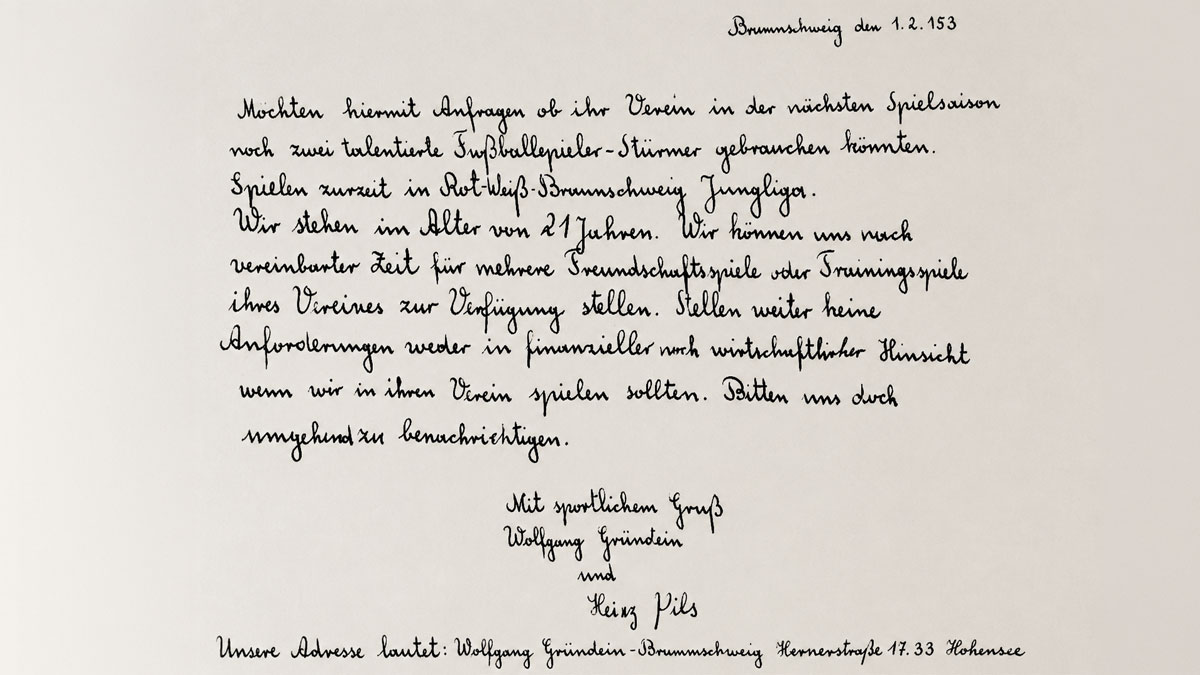 Brumnschweig den 1.2.153
Möchten hiermit Anfragen ob ihr Verein in der nächsten Spielsaison
noch zwei talentierte Fußballepieler-Stürmer gebrauchen könnten.
Spielen zurzeit in Rot-Weiß-Braunschweig Jungliga.
Wir stehen im Alter von 21 Jahren. Wir können uns nach
vereinbarter Zeit für mehrere Freundschaftsspiele oder Trainingsspiele
ihres Vereines zur Verfügung stellen. Stellen weiter keine
Anforderungen weder in finanzieller noch wirtschaftlicher Hinsicht
wenn wir in ihren Verein spielen sollten. Bitten uns doch
umgehend zu benachrichtigen.
Mit sportlichem Gruß
Wolfgang Gründein
und
Heinz Pils
Unsere Adresse lautet: Wolfgang Gründein-Brummschweig Hernerstraße 17.33 Hohensee